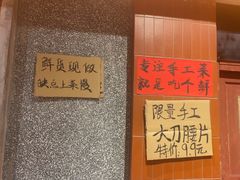 鲜货现做
缺点上菜慢
专注手工菜
就是吃个鲜
限量手工
大刀腰片
特价:9.9元